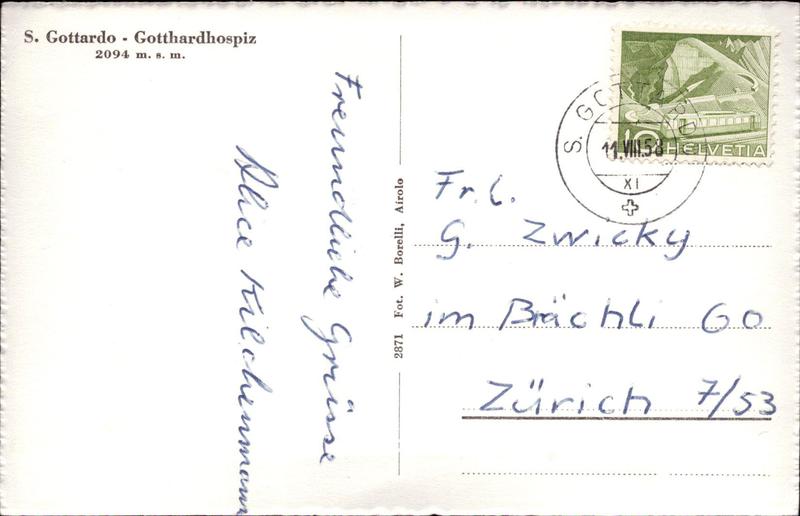 S. Gottardo - Gotthardhospiz
2094 m. s. m.
Freundliche Grüsse
Alice Kilchenmann
2871 Fot. W. Borelli, Airolo
S. GOTTARDO
11.VIII.58
XI
10 HELVETIA
Frl.
G. Zwicky
im Brächli 60
Zürich 7/53